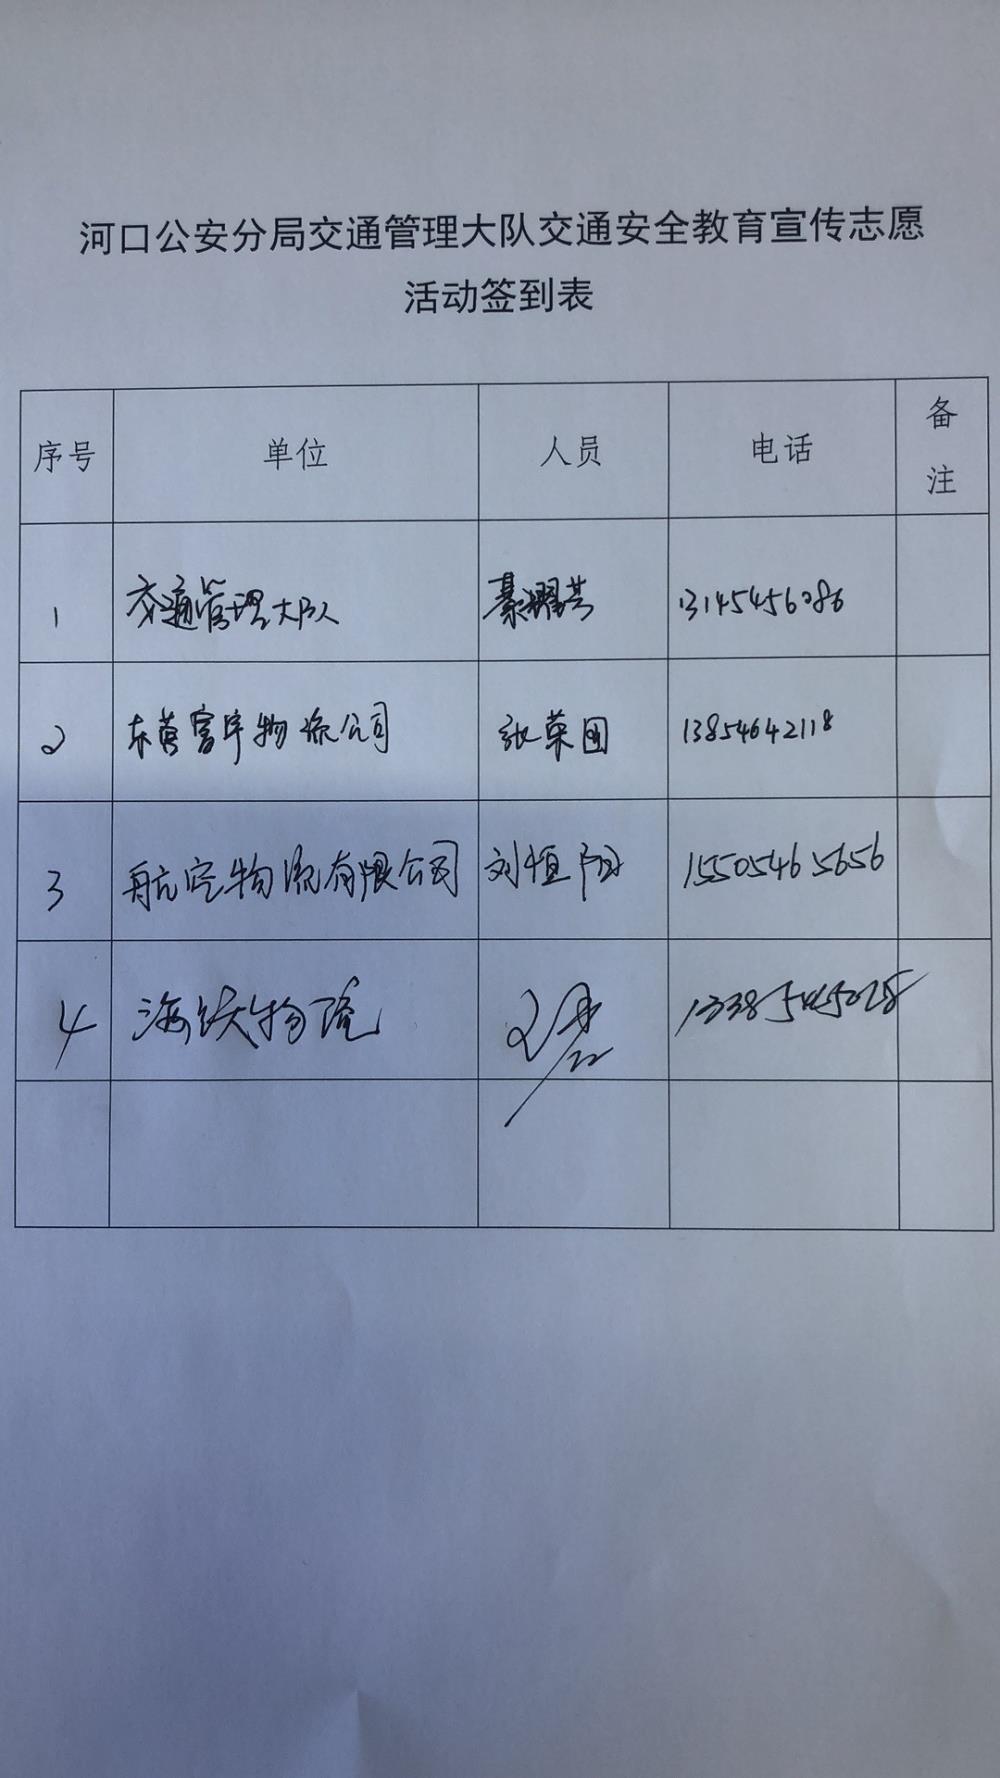 河口公安分局交通管理大队交通安全教育宣传志愿
活动签到表
序号 单位 人员 电话 备注
1 交通管理大队 綦耀芸 13145456086
2 东营富宇物流公司 张荣团 13854642118
3 航空物流有限公司 刘恒阳 15505465656
4 海铁物流